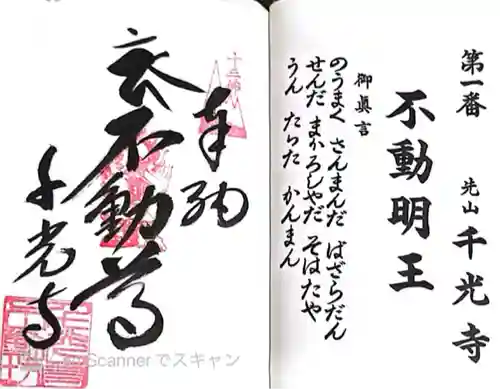 第一番 先山 千光寺
不動明王
御眞言
のうまく さんまんだ ばざらだん
せんだ まかろしやだ そはたや
うん たらた かんまん
奉納
衣不動尊
千光寺
Scanner でスキャン